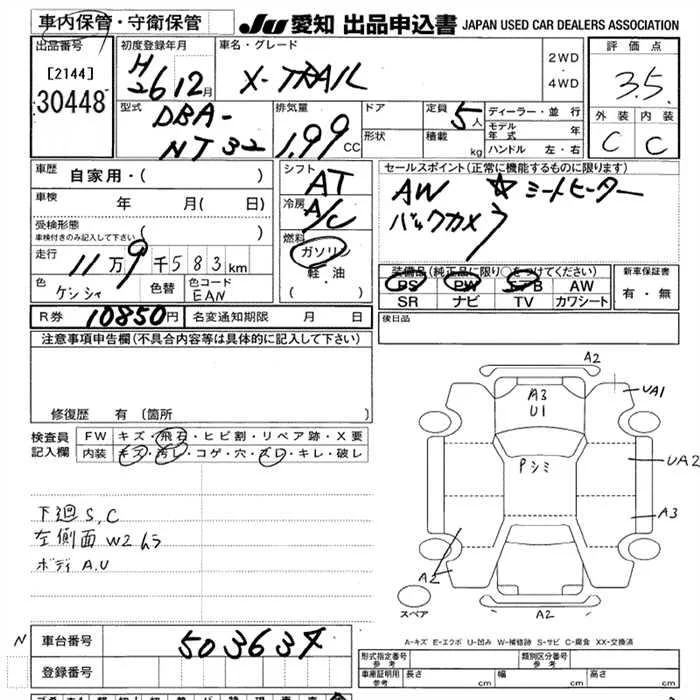 車内保管・守衛保管
JU 愛知 出品申込書 JAPAN USED CAR DEALERS ASSOCIATION
出品番号
[2144]
30448
初度登録年月
H26 12月
車名・グレード
X-TRAIL
2WD
・
4WD
評価点
3.5
外装 内装
C C
型式
DBA-
NT32
排気量
1.99 CC
ドア
形状
定員 5人
積載 kg
ディーラー・並行
モデル年式 年
ハンドル 左・右
車歴 自家用・( )
車検 年 月( 日)
受検形態
車検付きのみ記入して下さい ( )
走行 11万9千583km
色 ケンシャ
色替
色コード EAN
シフト
AT
冷房
A/C
燃料
ガソリン
軽・油
( )
セールスポイント(正常に機能するものに限ります)
AW ☆シートヒーター
バックカメラ
装備品(純正品に限り○をつけてください)
PS PW AW
SR ナビ TV カワシート
新車保証書
有・無
R券 10850円 名変通知期限 月 日
後日品
注意事項申告欄(不具合内容等は具体的に記入して下さい)
修復歴 有 〔箇所
検査員記入欄
FW キズ・飛石・ヒビ割・リペア跡・X要
内装 キズ・汚レ・コゲ・穴・ズレ・キレ・破レ
下廻S,C
左側面W2ムラ
ボディA.U
A2
A3
U1
UA1
Pシミ
UA2
A3
A2
A2
スペア
A-キズ E-エクボ U-凹み W-補修跡 S-サビ C-腐食 XX-交換済
N 車台番号 503637
登録番号
形式指定番号 参考
類別区分番号 参考
車庫証明用 参考 長さ cm 幅 cm 高さ cm